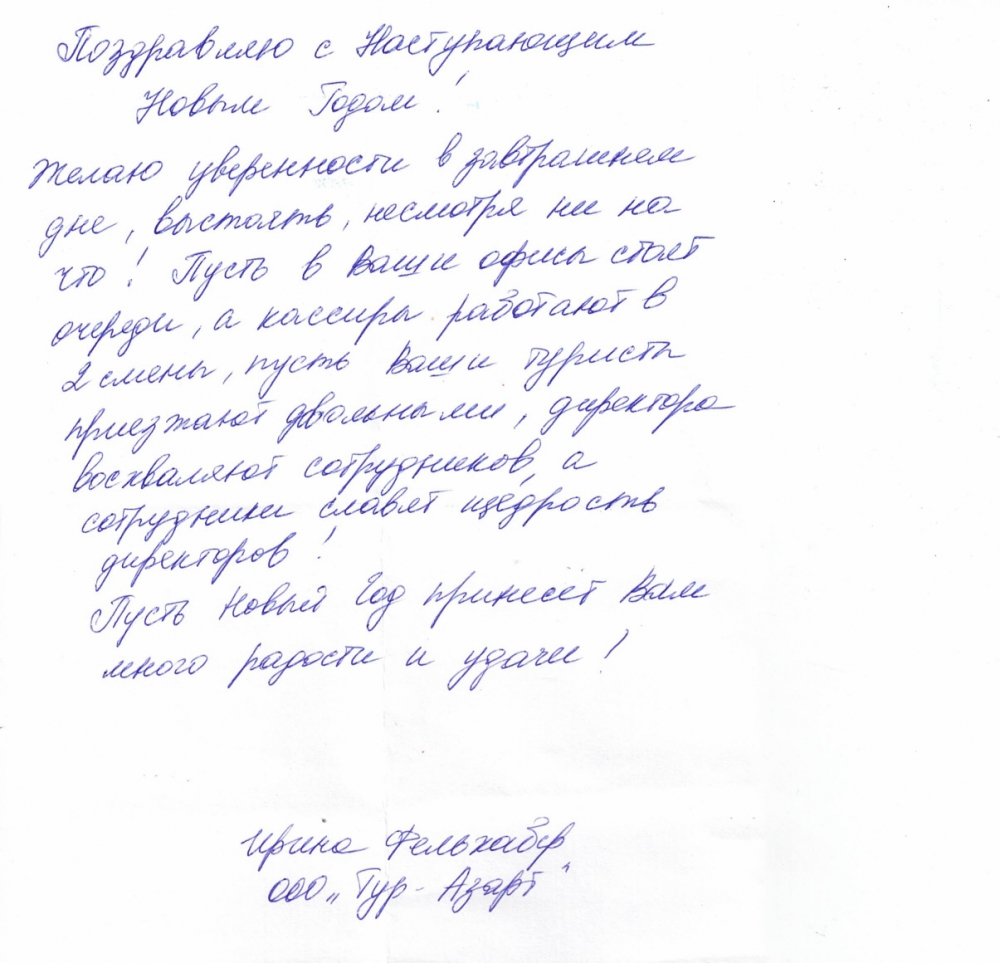 Поздравляю с Наступающим
Новым Годом!
Желаю уверенности в завтрашнем
дне, выстоять, несмотря ни на
что! Пусть в Ваши офисы стоят
очереди, а кассиры работают в
2 смены, пусть Ваши туристы
приезжают довольными, директора
восхваляют сотрудников, а
сотрудники славят щедрость
директоров!
Пусть Новый Год принесёт Вам
много радости и удачи!
Ирина Фельхабер
ООО „Тур-Азарт"